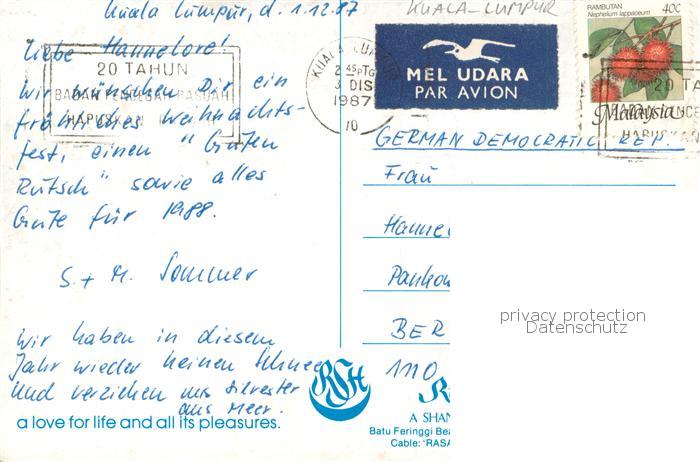 Kuala Lumpur, d. 1.12.87
KUALA-LUMPUR
Liebe Hannelore!
wir wünschen Dir ein
fröhliches Weihnachts-
fest, einen "Guten
Rutsch" sowie alles
Gute für 1988.
S. + M. Sommer
Wir haben in diesem
Jahr wieder keinen Schnee
und verziehen uns Silvester
ans Meer.
a love for life and all its pleasures.
20 TAHUN
BADAN PENCEGAH RASUAH
HAPUSKAN
KUALA LUMPUR
2 45PTG
3 DIS
1987
10
MEL UDARA
PAR AVION
RAMBUTAN 40C
Nephelium lappaceum
Malaysia
20 TA
HAPUSKAN
GERMAN DEMOCRATIC REP.
Frau
Hanne
Pankow
BER
1110
privacy protection
Datenschutz
RSH
R
A SHAN
Batu Feringgi Bea
Cable: 'RASA